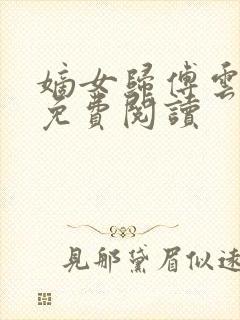 嫡女歸傅雲
免費閱讀
見那黛眉似遠